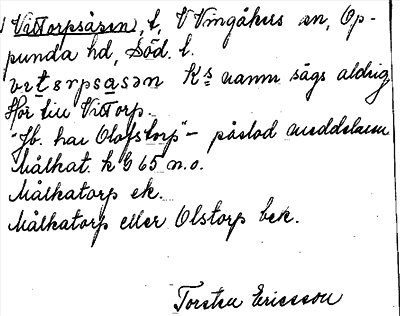 Vittorpsåsen, t, V Vingåkers sn, Op-
punda hd, Söd. l.
vɩtərpsasən Ks namn sägs aldrig
Hör till Vittorp.
"Jb. har Olofstorp" – påstod meddelaren
Målkat. k G 65 n.o.
Målkatorp ek.
Målkatorp eller Olstorp bek.
Torsten Ericsson